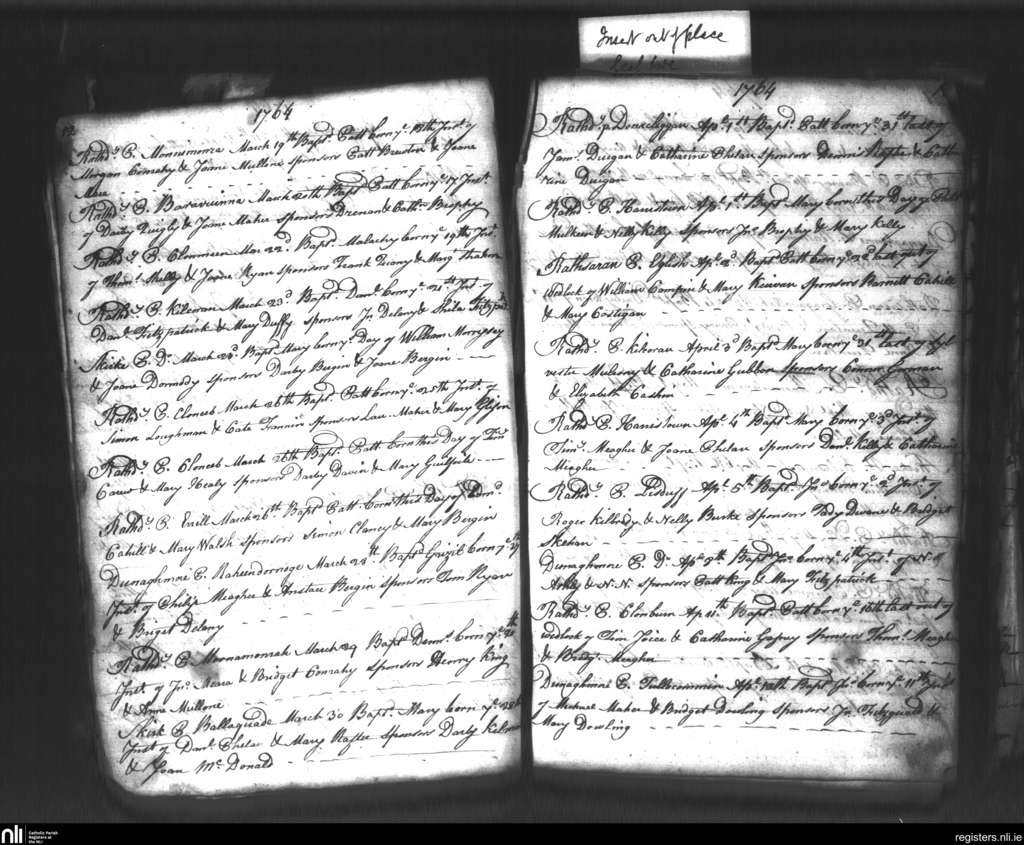 Insert out of place
1764
12
Rathdy. P. Monamonra March 19th Bapt. Patt born ye. 18th Inst. of
Morgan Conrahy & Joane Mullone sponsors Patt Brewton & Joane
Rathdy. P. March 20th Bapt. Patt born ye. 17 Inst.
of Darby Quigly & Joane Maher Sponsors Drenan & Cath. Brophy
Rathdy. P. Clonmeen Mar. 22d. Bapt. Malachy born ye. 19th Inst.
of Thoms. Shelly & Joane Ryan sponsors Frank & Mary
Rathdy. P. Kilcowan March 23d Bapt. Danl. born ye. 21st Inst. of
Danl. Fitzpatrick & Mary Duffy sponsors Jn. Delany & Shila Fitzpad.
Skirk P. Do. March 25. Bapt. Mary born ye. Day of William Morrissy
& Joane Dormody sponsors Darby Bergin & Joane Bergin
Rathdy. P. Cloncob March 26th Bapt. Patt born ye. 25th Inst. of
Simon Loughman & Cate sponsors Law. Maher & Mary
Rathdy. P. Cloncob March 26th Bapt. Patt born this Day of Tim.
& Mary Healy sponsors Darby Davin & Mary Guilfoile
Rathdy. P. Errill March 26th Bapt. Patt. born this Day of
Cahill & Mary Walsh sponsors Simon Clancy & Mary Bergin
Dunaghmore P. Raheendornoge March 28th Bapt. Grizil born ye. 27th
Inst. of Philip Meagher & Anstace Bergin sponsors Tom Ryan
& Briget Delany
Rathdy. P. Monamonrah March 29 Bapt. Denns. born ye.
Inst. of Jns. Meara & Bridget Conrahy sponsors Henry King
& Anne Mullone
Skirk P. Ballaquade March 30 Bapt. Mary born ye. 28th
Inst. of Danl. Phelan & Mary Rafter Sponsors Darby
& Joan McDonald
1764
Rathdy. P. Donacliggan Apl. 1st Bapt. Patt born ye. 31st last of
Jams. Duigan & Catharine Phelan sponsors Dennis & Cath
rine Duigan
Rathdy. P. Harristown Apl. 1st Bapt. Mary born this Day of Patt
Hulken & Nelly Kelly Sponsors Jn. Brophy & Mary Kelly
Rathsaran P. Eglish Apl. 2d Bapt. Patt born ye. 22d last out of
Wedlock of William & Mary Kirwan Sponsors Barnett Cahill
& Mary Costigan
Rathdy. P. Kiloran April 3d Bapt. Mary born ye. 31st last of Syl
vester Mulroney & Catharine Gubbon Sponsors Connor Gorman
& Elizabeth Cashin
Rathdy. P. Harristown Apl. 4th Bapt. Mary born ye. 3d Inst. of
Tims. Meagher & Joane Phelan Sponsors Danl. Killy & Catharin
Meagher
Rathdy. P. Lisduff Apl. 5th Bapt. Jn. born ye. 2d Inst. of
Roger Killady & Nelly Burke Sponsors Tady Dwane & Bridget
Skehan
Dunaghmore P. Do. Apl. 9th Bapt. Jn. born ye. 4th Inst. of N.N.
& N.N. sponsors Patt King & Mary Fitzpatrick
Rathdy. P. Clonburn Apl. 11th Bapt. Patt born ye. 16th last out of
Wedlock of Tim Joice & Catharine Gafney sponsors Thoms. Meagher
& Bridgt. Meagher
Dunaghmore P. Tullacommin Apl. 12th Bapt. Jn. born ye. 11th Inst.
of Michael Maher & Bridget Dowling sponsors Jn. Fitzgerald &
Mary Dowling
nli
Catholic Parish
Registers at
the NLI
registers.nli.ie